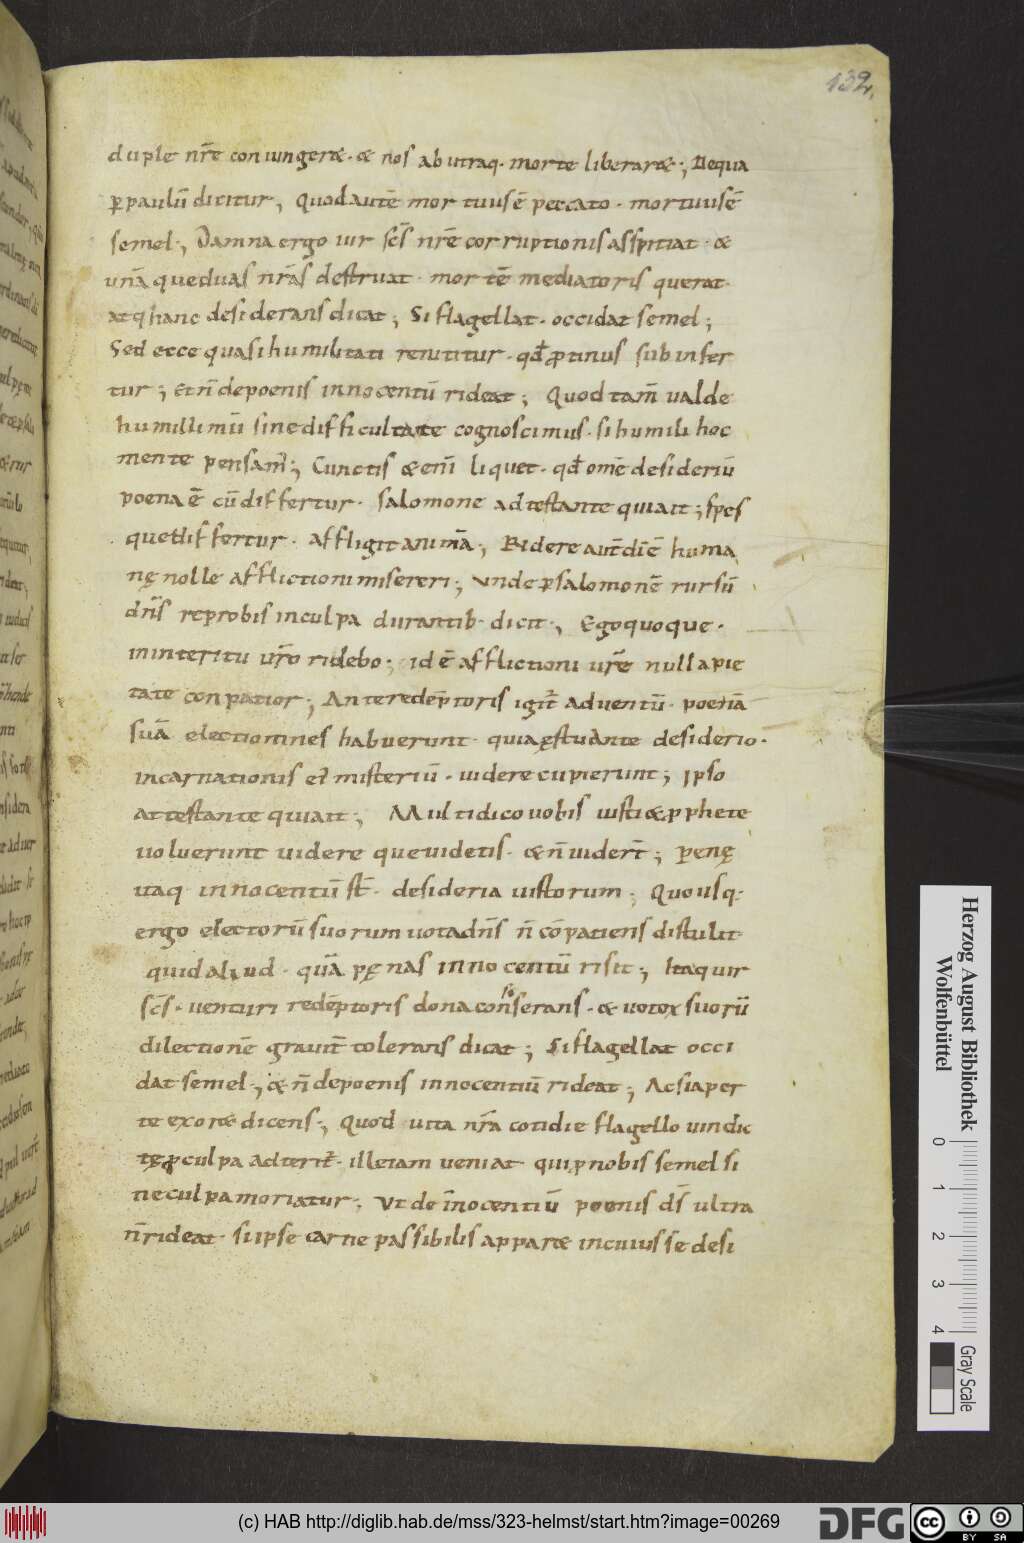 132.
duple nr̄e coniungeret. et nos ab utraq. morte liberaret; De qua
ꝑ paulū dicitur; Quod autē mortuus ē peccato. mortuus ē
semel; Damna ergo uir sc̄s nr̄e corruptionis asspiciat. et
unā que duas nr̄as destruat. mortē mediatoris querat.
atq hanc desiderans dicat; Si flagellat. occidat semel;
Sed ecce quasi humilitati renititur. qd̄ ꝓtinus subinfer
tur; Et n̄ de poenis innocentū rideat; Quod tam̄ ualde
humillimū sine difficultate cognoscimus. si humili hoc
mente pensam̄; Cunctis et eni liquet. qd̄ om̄e desideriū
poena ē cū differtur. salomone adtestante qui ait; spes
que differtur. affligit animā; Ridere aut̄ dī ē huma
nę nolle afflictioni misereri; unde ꝑ salomonē rursū
dn̄s reprobis in culpa durantib. dicit; Ego quoque.
in interitu ur̄o ridebo; id ē afflictioni ur̄e nulla pie
tate conpatior; Ante redēptoris igit̄ aduentū. poenā
suā electi omnes habuerunt. quia ęstuante desiderio.
incarnationis ei misteriū. uidere cupierunt; Ipso
attestante qui ait; Multi dico uobis iusti et pphete
uoluerunt uidere que uidetis. et n̄ uider̄t; Penę
itaq innocentū st̄. desideria iustorum; Quousq.
ergo electorū suorum uota dn̄s n̄ cōpatiens distulit.
quid aliud. quā pęnas innocentū risit; Itaq uir
sc̄s. uenturi redēptoris dona conserans. et uotoꝝ suorū
dilectionē grauit̄ tolerans dicat; Si flagellat occi
dat semel; et n̄ de poenis innocentiū rideat; Ac si aper
te exoret dicens; Quod uita nr̄a cotidie flagello uindic
tę ꝓ culpa adterit̄. ille iam ueniat qui p nobis semel si
ne culpa moriatur; Ut de īnocentiū poenis ds̄ ultra
n̄ rideat. si ipse carne passibilis apparet in cuius se desi
Herzog August Bibliothek
Wolfenbüttel
0 1 2 3 4
Gray Scale
(c) HAB http://diglib.hab.de/mss/323-helmst/start.htm?image=00269
DFG
cc BY SA